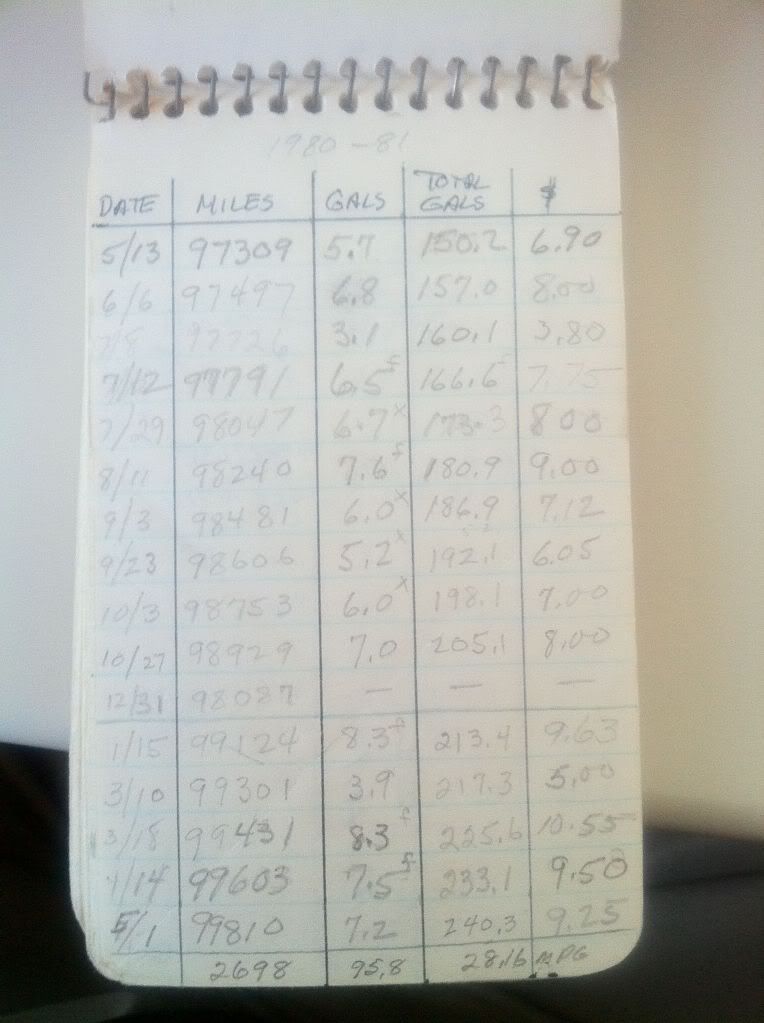 1980-81
DATE MILES GALS TOTAL GALS $
5/13 97309 5.7 150.2 6.90
6/6 97497 6.8 157.0 8.00
7/8 97726 3.1 160.1 3.80
7/12 97791 6.5f 166.6f 7.75
7/29 98047 6.7x 173.3 8.00
8/11 98240 7.6f 180.9 9.00
9/3 98481 6.0x 186.9 7.12
9/23 98606 5.2x 192.1 6.05
10/3 98753 6.0x 198.1 7.00
10/27 98929 7.0 205.1 8.00
12/31 98087 — — —
1/15 99124 8.3f 213.4 9.63
3/10 99301 3.9 217.3 5.00
3/18 99431 8.3f 225.6 10.55
4/14 99603 7.5f 233.1 9.50
5/1 99810 7.2 240.3 9.25
2698 95.8 28.16 MPG